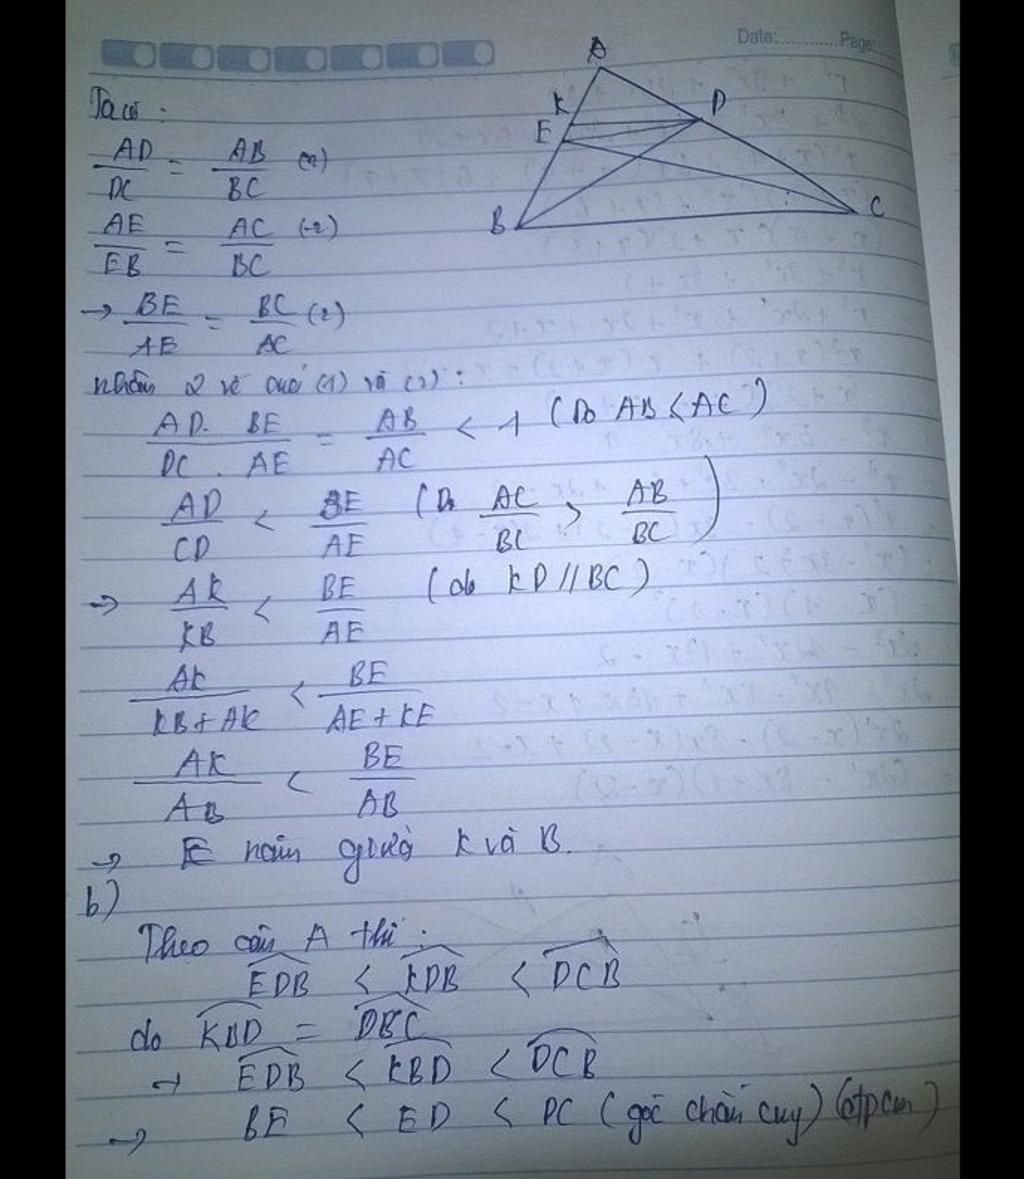 Date:............Page:
A
K
D
E
B
C
Ta có :
AD/DC = AB/BC (1)
AE/EB = AC/BC (2)
→ BE/AE = BC/AC (2)
nhân 2 vế của (1) và (2) :
AD. BE / DC . AE = AB/AC < 1 (Do AB < AC)
AD/CD < BE/AE (Do AC/BC > AB/BC)
→ AK/KB < BE/AE (do KD // BC)
AK/KB+AK < BE/AE+KE
AK/AB < BE/AB
→ E nằm giữa K và B.
b)
Theo câu A thì :
EDB < KDB < DCB
do KBD = DBC
→ EDB < KBD < DCB
→ BE < ED < DC (góc chắn cung) (đpcm)